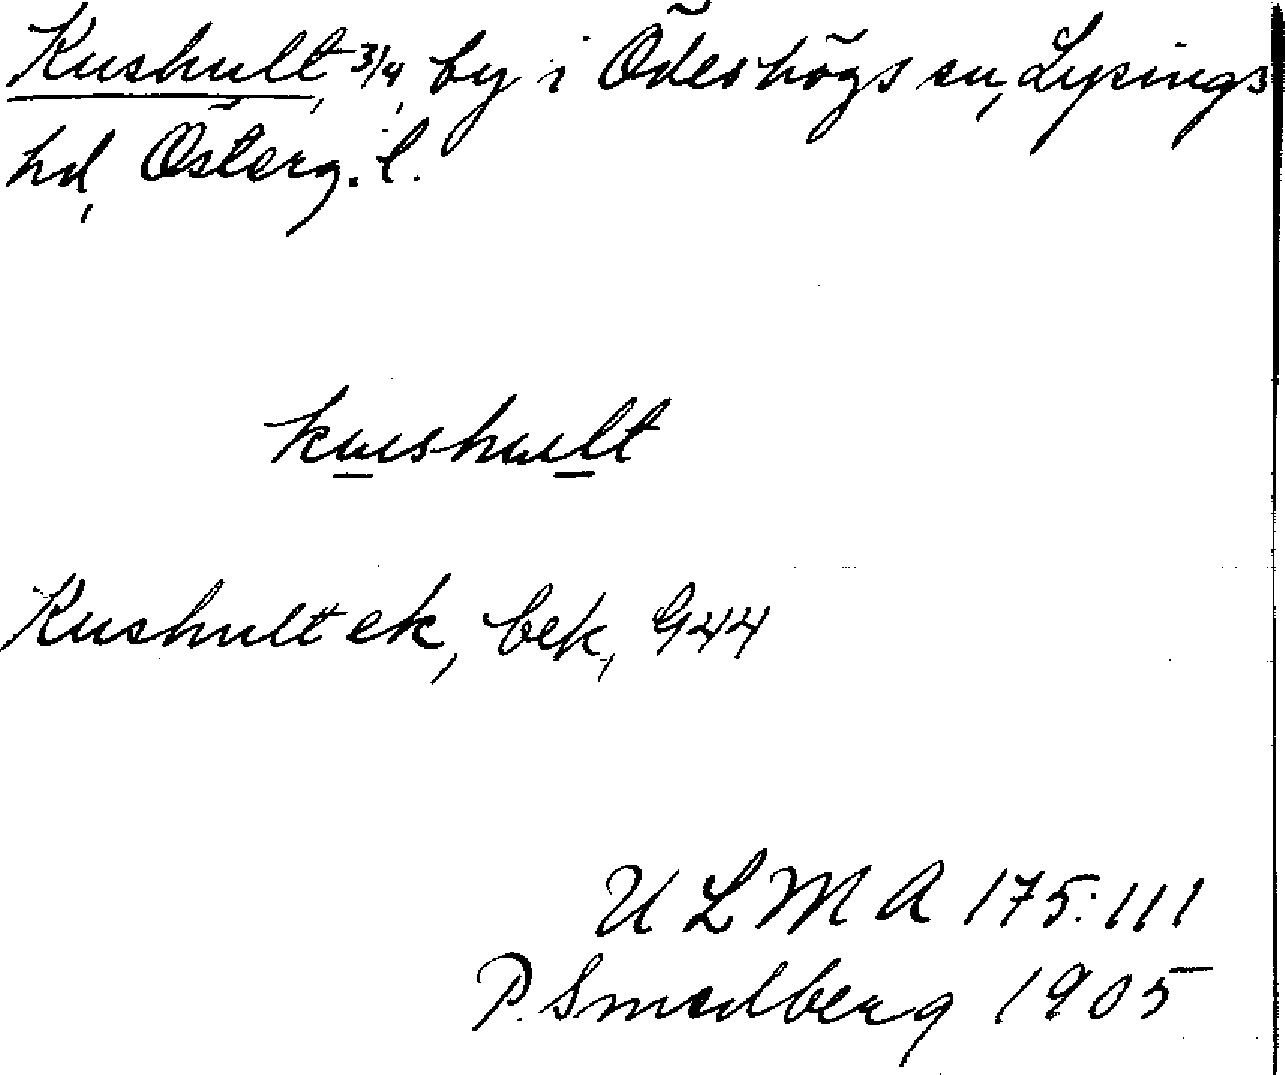 Kushult, 3/4, by i Ödeshögs sn, Lysings
hd, Österg. l.
kushult
Kushult ek, bek, 944
ULMA 175:111
P. Smedberg 1905